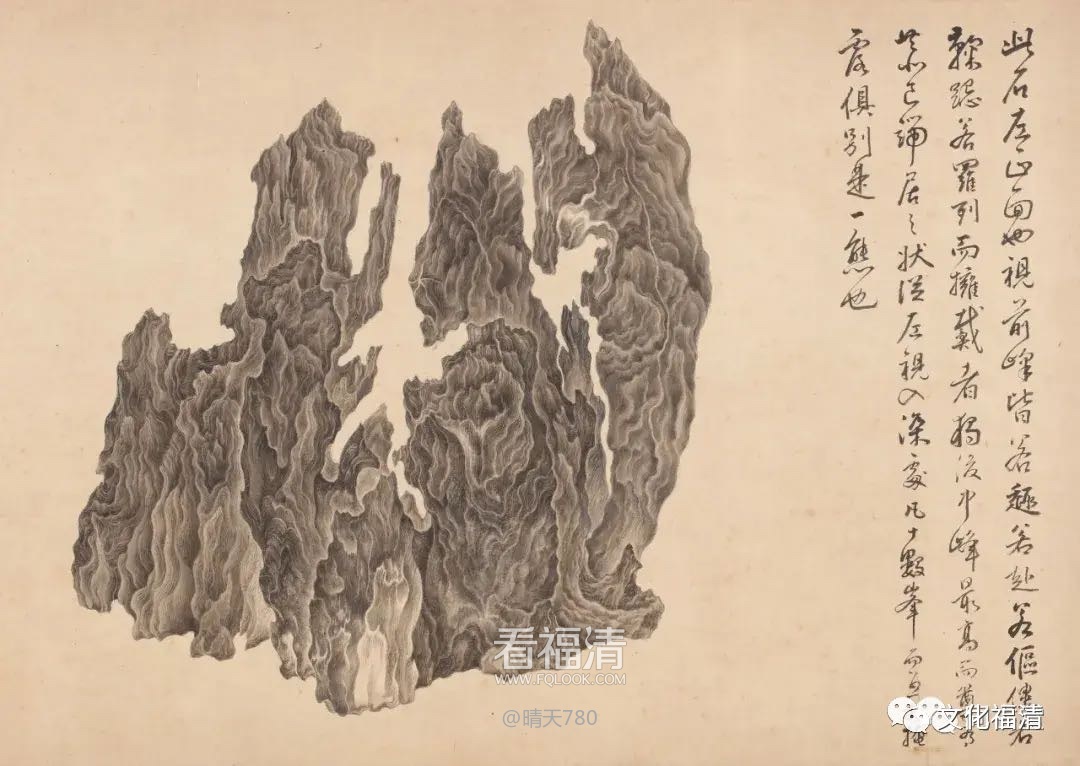 此石左正面也視前峰皆若趨若赴若傴僂若
鞠跽若羅列而擁戴者獨後中峰最高而有
恭己端居之狀從左視入深處凡十數峯而掩
露俱別是一態也
看福清
WWW.FQLOOK.COM
@晴天780
文化福清